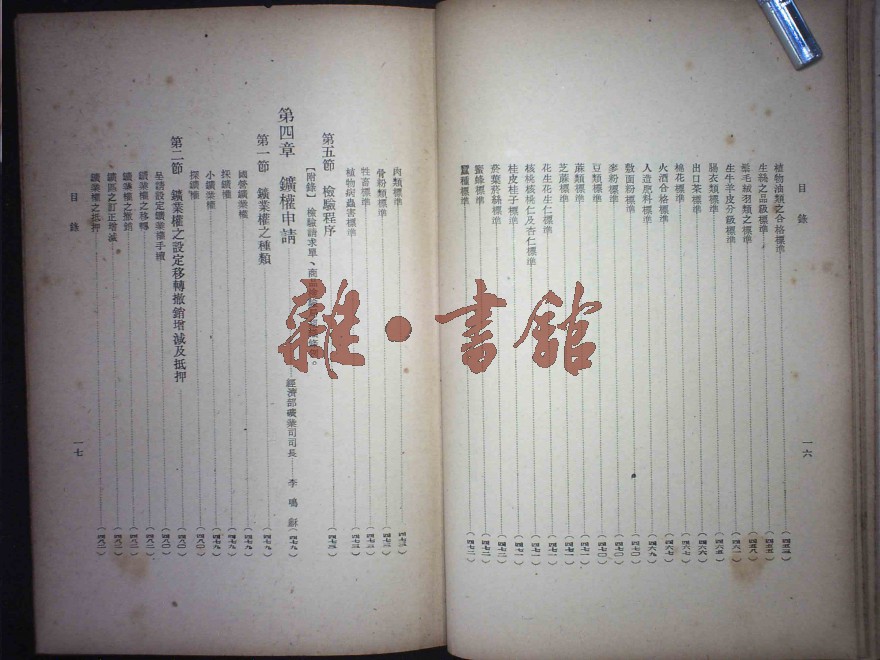 目錄
植物油類之合格標準……(四五三)
生絲之品級標準……(四五五)
豬毛絨羽類之標準……(四五八)
生牛羊皮分級標準……(四六一)
腸衣類標準……(四六五)
出口茶標準……(四六六)
棉花標準……(四六七)
火酒合格標準……(四六九)
人造肥料標準……(四六九)
麩面粉標準……(四七〇)
麥粉標準……(四七〇)
豆類標準……(四七〇)
蔴類標準……(四七一)
芝蔴標準……(四七一)
花生花生仁標準……(四七一)
核桃核桃仁及杏仁標準……(四七一)
桂皮桂子標準……(四七一)
菸葉菸絲標準……(四七二)
蜜蜂標準……(四七二)
蠶種標準……(四七二)
一六
肉類標準……(四七三)
骨粉類標準……(四七三)
牲畜標準……(四七三)
植物病蟲害標準……(四七三)
第五節 檢驗程序……(四七三)
【附錄】檢驗請求單、商品
第四章 鑛權申請……經濟部鑛業司司長——李鳴龢(四七九)
第一節 鑛業權之種類……(四七九)
國營鑛業權……(四七九)
採鑛權……(四七九)
小鑛業權……(四七九)
探鑛權……(四八〇)
第二節 鑛業權之設定移轉撤銷增減及抵押……(四八〇)
呈請設定鑛業權手續……(四八一)
鑛業權之移轉……(四八一)
鑛業權之撤銷……(四八二)
鑛區之訂正增減……(四八二)
鑛業權之抵押……(四八二)
目錄
一七
雜·書舘